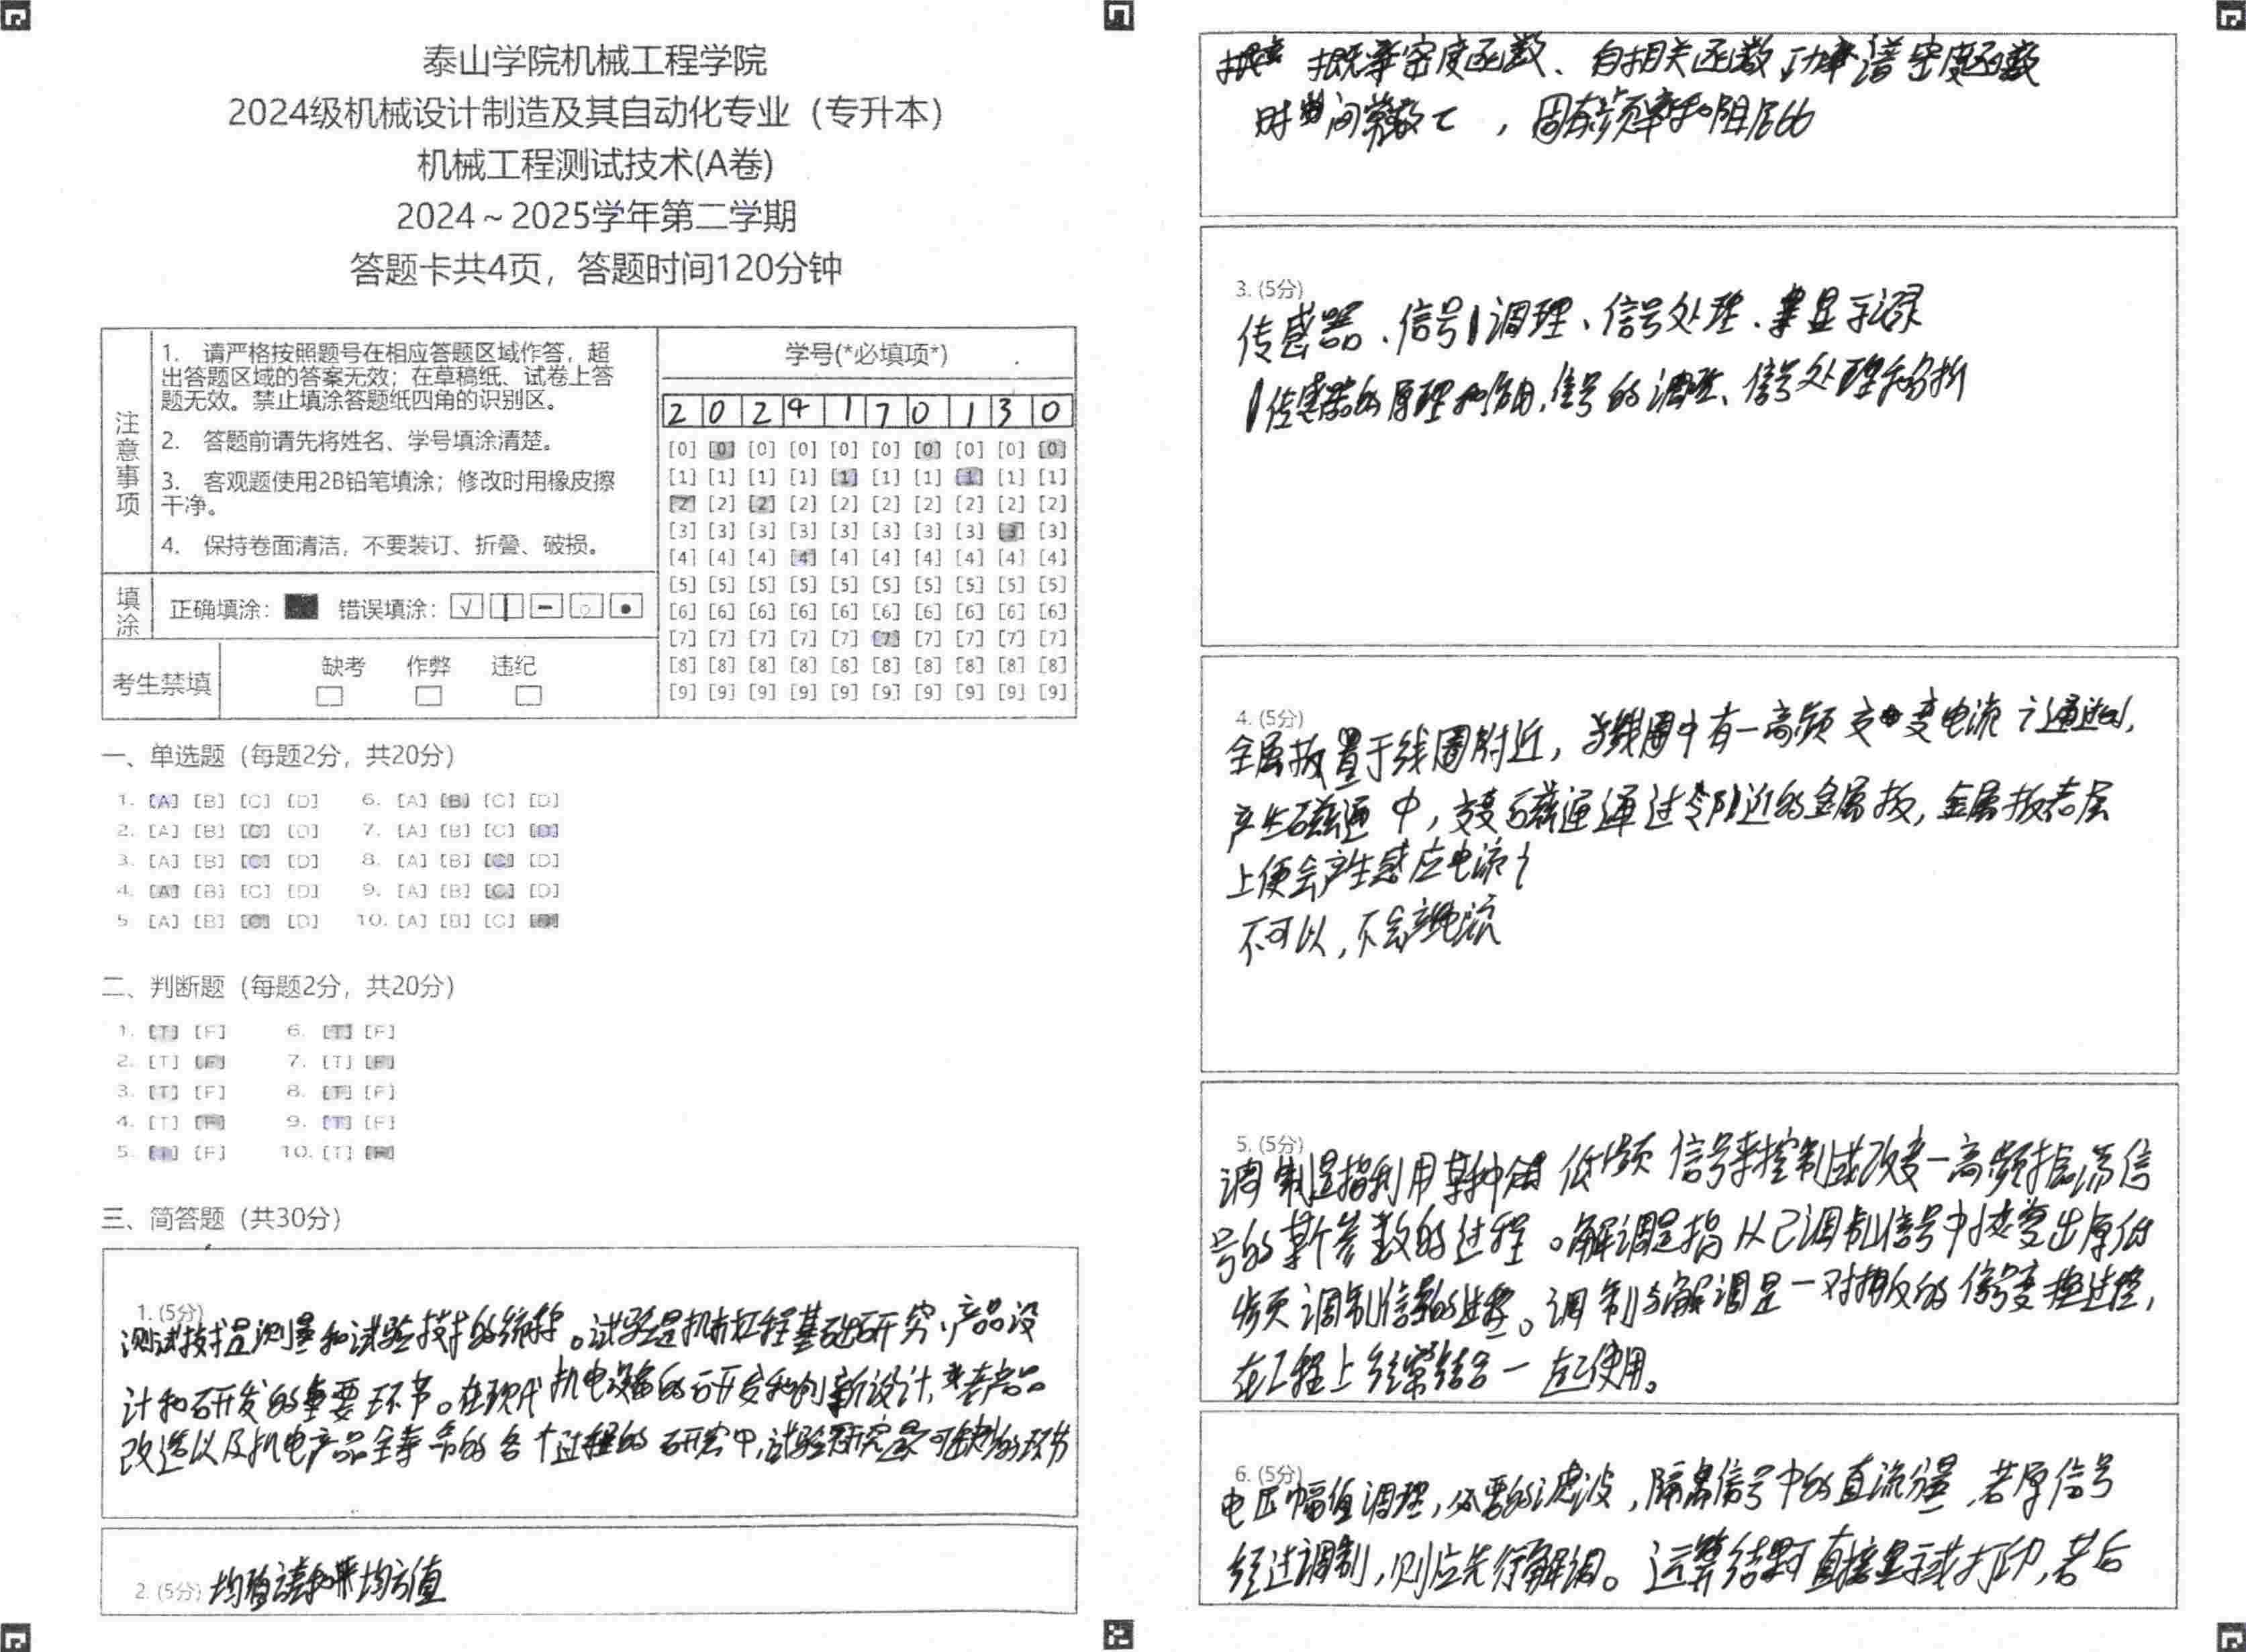 泰山学院机械工程学院
2024级机械设计制造及其自动化专业（专升本）
机械工程测试技术(A卷)
2024～2025学年第二学期
答题卡共4页，答题时间120分钟
注意事项
1. 请严格按照题号在相应答题区域作答，超
出答题区域的答案无效；在草稿纸、试卷上答
题无效。禁止填涂答题纸四角的识别区。
2. 答题前请先将姓名、学号填涂清楚。
3. 客观题使用2B铅笔填涂；修改时用橡皮擦
干净。
4. 保持卷面清洁，不要装订、折叠、破损。
填涂 正确填涂： 错误填涂：
考生禁填 缺考 作弊 违纪
学号(*必填项*)
2 0 2 4 1 7 0 1 3 0
[0] [0] [0] [0] [0] [0] [0] [0] [0] [0]
[1] [1] [1] [1] [1] [1] [1] [1] [1] [1]
[2] [2] [2] [2] [2] [2] [2] [2] [2] [2]
[3] [3] [3] [3] [3] [3] [3] [3] [3] [3]
[4] [4] [4] [4] [4] [4] [4] [4] [4] [4]
[5] [5] [5] [5] [5] [5] [5] [5] [5] [5]
[6] [6] [6] [6] [6] [6] [6] [6] [6] [6]
[7] [7] [7] [7] [7] [7] [7] [7] [7] [7]
[8] [8] [8] [8] [8] [8] [8] [8] [8] [8]
[9] [9] [9] [9] [9] [9] [9] [9] [9] [9]
一、单选题（每题2分，共20分）
1. [A] [B] [C] [D] 6. [A] [B] [C] [D]
2. [A] [B] [C] [D] 7. [A] [B] [C] [D]
3. [A] [B] [C] [D] 8. [A] [B] [C] [D]
4. [A] [B] [C] [D] 9. [A] [B] [C] [D]
5 [A] [B] [C] [D] 10. [A] [B] [C] [D]
二、判断题（每题2分，共20分）
1. [T] [F] 6. [T] [F]
2. [T] [F] 7. [T] [F]
3. [T] [F] 8. [T] [F]
4. [T] [F] 9. [T] [F]
5. [T] [F] 10. [T] [F]
三、简答题（共30分）
1. (5分)
测试技术是测量和试验技术的统称。试验是机械工程基础研究、产品设
计和研发的重要环节。在现代机电设备的研发和创新设计，老产品
改造以及机电产品全寿命的各个过程的研究中，试验研究是不可缺少的环节
2. (5分) 均方值
概率密度函数、自相关函数，功率谱密度函数
时间常数τ，固有频率和阻尼比
3. (5分)
传感器、信号调理、信号处理、显示记录
传感器的原理和作用，信号的调理、信号处理和分析
4. (5分)
金属板置于线圈附近，当线圈中有一高频交变电流i通过时，
产生磁通中，交变磁通通过邻近的金属板，金属板表层
上便会产生感应电流i
不可以，不会产生电流
5. (5分)
调制是指利用某种低频信号来控制或改变一高频振荡信
号的某个参数的过程。解调是指从已调制信号中恢复出原低
频调制信号的过程。调制与解调是一对相反的信号变换过程，
在工程上经常结合一起使用。
6. (5分)
电压幅值调理，必要的滤波，隔离信号中的直流分量，若原信号
经过调制，则应先行解调。运算结果可直接显示或打印，若后